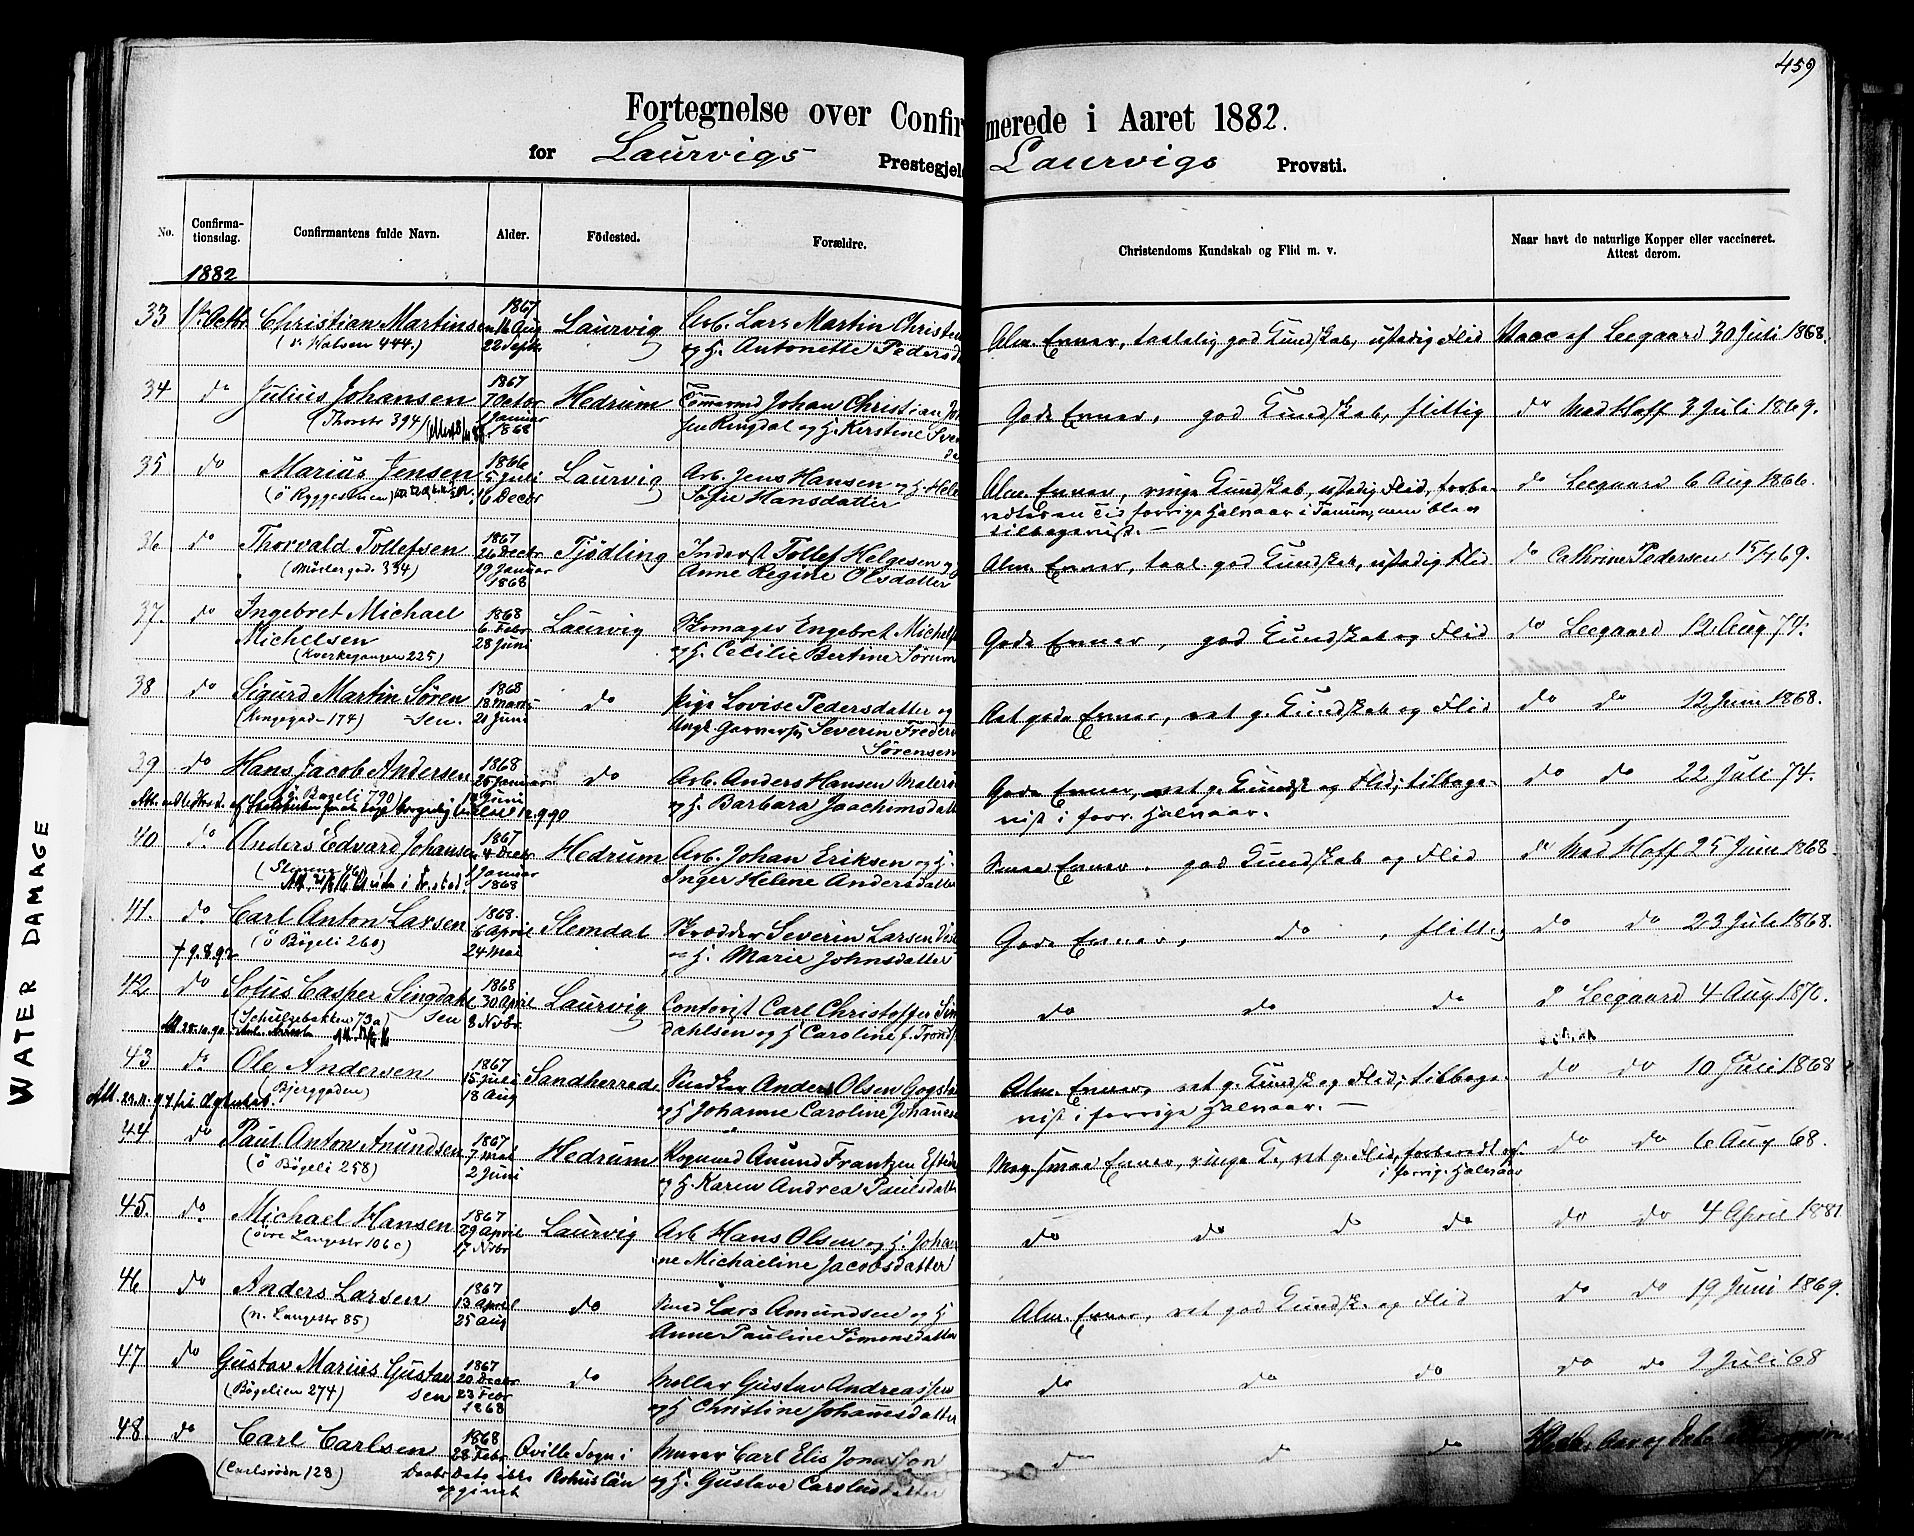 459
Fortegnelse over Confirmerede i Aaret 1882.
for Laurvigs Prestegjeld Laurvigs Provsti.
No. Confirmationsdag. Confirmantens fulde Navn. Alder. Födested. Forældre. Christendoms Kundskab og Flid m. v. Naar havt de naturlige Kopper eller vaccineret. Attest derom.
1882
33 1ste Octbr Christian Martinsen 1867 16 Aug 22 Septr Laurvig Arb. Lars Martin Christen og H. Antonette Pedersd
444.) Alm. Evner, taalelig god Kundskab, ustadig Flid Vacc af Leegaard 30 Juli 1868.
34 do Julius Johansen 1867 7 Octbr 1 Januar 1868 Hedrum Tömmermd Johan Christian
(Thorstr 394) Ringdal og H. Kirstine
Gode Evner, god Kundskab, flittig do Mad Hoff 3 Juli 1869.
35 do Marius Jensen 1866 5 Juli 16 Decbr Laurvig Arb. Jens Hansen og H. Hele
Sofie Hansdatter
Alm. Evner, ringe Kundskab, ustadig Flid, forbe-
redtes en Tid forrige Halvaar i Tanum, men blev
tilbagevist. — do Leegaard 6 Aug 1866.
36 do Thorvald Tollefsen 1867 26 Decbr 19 Januar 1868 Tjödling Inderst Tollef Helgesen og
334) Anne Regine Olsdatter
Alm. Evner, taal. god Kundskab, ustadig Flid do Cathrine Pedersen 15/4 69.
37. do Ingebret Michael 1868 6 Febr 28 Juni Laurvig Skomager Engebret Michels
Michelsen og H. Cecilie Bertine Sørum
(Kverkegangen 225)
Gode Evner, god Kundskab og Flid do Leegaard 12 Aug 74.
38 do Sigurd Martin Søren 1868 18 Marts 21 Juni do Pige Lovise Pedersdatter og
(Kongegad- 174) - sen. Ungk. Garversv Severin Frederi
Sørensen
Ret gode Evner, ret g. Kundskab og Flid do do 12 Juni 1868.
39 do Hans Jacob Andersen 1868 25 Januar Juni do Arb. Anders Hansen
Bøgeli 790) og H. Barbara Joachimsdatt
Gode Evner, ret g. Kundsk og Flid; tilbage-
vist i forr. Halvaar. do do 22 Juli 74.
40 do Anders Edvard Johansen 1867 4 Decbr 1 Januar 1868 Hedrum Arb. Johan Eriksen og H.
Inger Helene Andersdatter
Smaa Evner. god Kundskab og Flid do Mad Hoff 25 Juni 1868.
41. do Carl Anton Larsen 1868. 6 April 24 Mai Slemdal Skrædder Severin Larsen
(ö Bögeli 260) og H. Marie Johnsdatter
† 9.8.92
Gode Evner, do, flittig do do 23 Juli 1868.
42 do Sofus Casper Singdahl 1868 30 April 8 Nvbr Laurvig Contorist Carl Christoffer Sin
(Schulzebakken 73a) sen dahlsen og H Caroline f. Trond
do do do Leegaard 4 Aug. 1870.
43 do Ole Andersen 1867 15 Juli 18 Aug Sandherred Snedker Anders Olsen Gogsta
(Bjerggaden) og H Johanne Caroline Johannes
Alm. Evner, ret g. Kundsk og Flid; tilbage-
vist i forrige Halvaar. — do do 10 Juli 1868
44 do Paul Anton Anundsen 1867 7 Mai 2 Juni Hedrum Anund Frantzen
(ö Bögeli 258) og H. Karen Andrea Paulsdatte
Meg. smaa Evner, ringe K., ret g. Flid, forberedt og
i forrig. Halvaar do do 6 Aug 68.
45. do Michael Hansen 1867 29 April 17 Nvbr Laurvig Arb Hans Olsen og H. Johan
(övre Langestr 106c) ne Michaeline Jacobsdatter
do do do do do do 4 April 1881
46 do Anders Larsen 1867 13 April 25 Aug do Smed Lars Amundsen og H
(n. Langestr 85) Anne Pauline Simonsdatter
Alm. Evner, ret god Kundsk. og Flid do do 19 Juni 1869.
47 do Gustav Marius Gustav 1867 20 Decbr 23 Febr 1868 do Möller Gustav Andreassen
(Bögelien 274) sen og H Christine Johannesdatter
do do do do do 9 Juli 68
48. do Carl Carlsen 1868 28 Febr Qville Sogn i Murer Carl Elis Jonasson
128) Daabs Dato ikke Bohuslän og H. Gustava Carolusdatter
opgivet
do do do
WATER DAMAGE